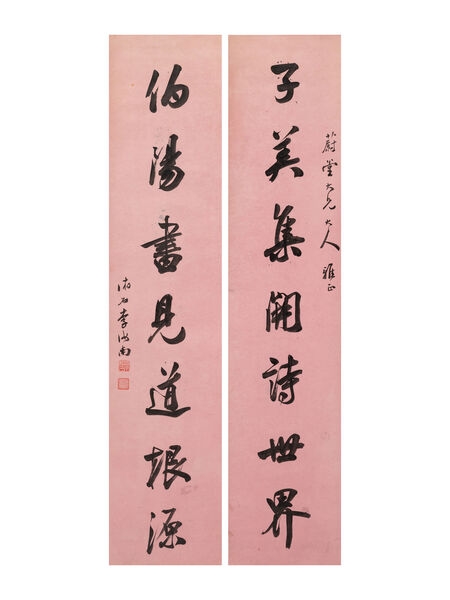 蔚堂大兄大人雅正
子美集開詩世界
伯陽書見道根源
李南